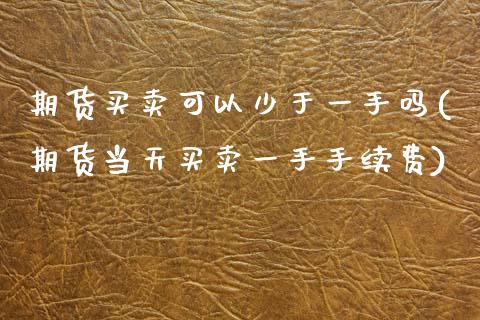 期货买卖可以少于一手吗(
期货当天买卖一手手续费)